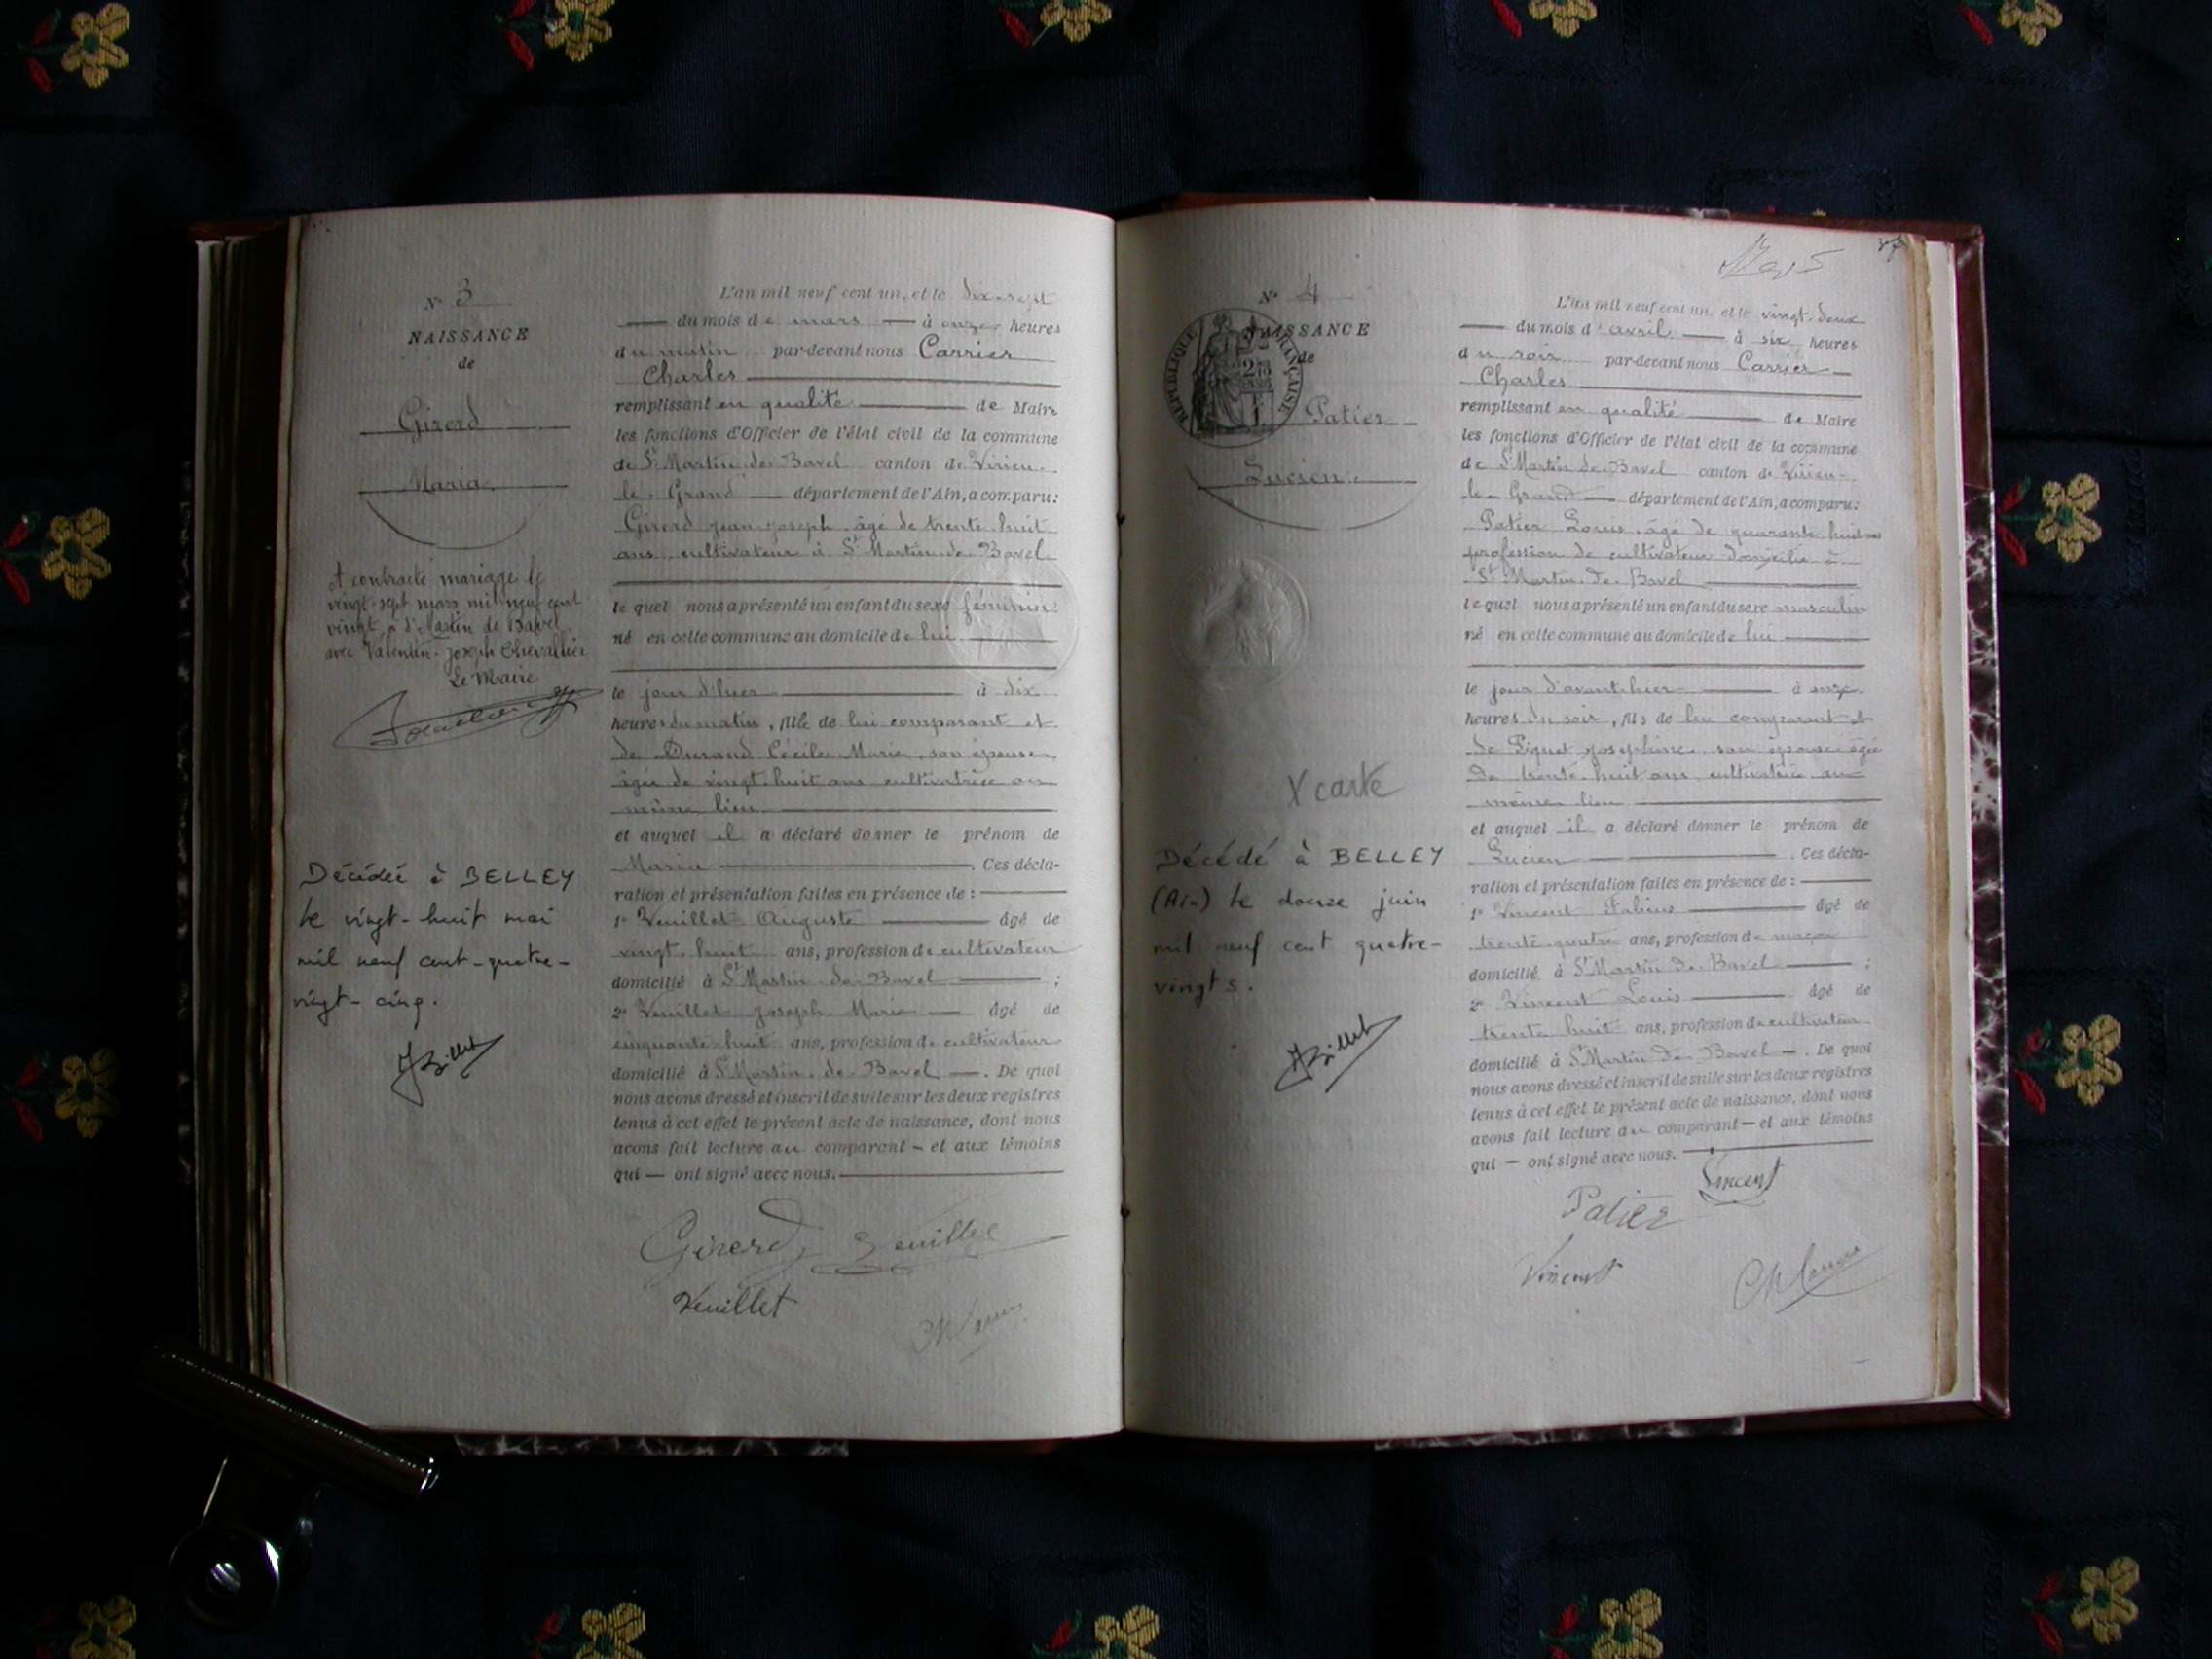 N° 3
NAISSANCE
de
Girerd
Maria
A contracté mariage le
vingt-sept mars mil neuf cent
vingt, à St Martin de Bavel
avec Valentin-Joseph Chevallier
Le Maire
Décédée à BELLEY
le vingt-huit mai
mil neuf cent-quatre-
vingt-cinq.
JBillet
L'an mil neuf cent un, et le dix-sept
du mois de mars à onze heures
du matin par-devant nous Carrier
Charles
remplissant en qualité de Maire
les fonctions d'Officier de l'état civil de la commune
de St Martin de Bavel canton de Virieu-
le-Grand département de l'Ain, a comparu:
Girerd Jean Joseph âgé de trente huit
ans, cultivateur à St Martin de Bavel
le quel nous a présenté un enfant du sexe féminin
né en cette commune au domicile de lui
le jour d'hier à dix
heures du matin, fille de lui comparant et
de Durand Cécile Marie, son épouse,
âgée de vingt-huit ans cultivatrice au
même lieu
et auquel il a déclaré donner le prénom de
Maria. Ces décla-
ration et présentation faites en présence de :
1° Veuillet Auguste âgé de
vingt-huit ans, profession de cultivateur
domicilié à St Martin de Bavel ;
2° Veuillet Joseph Marie âgé de
cinquante-huit ans, profession de cultivateur
domicilié à St Martin de Bavel. De quoi
nous avons dressé et inscrit de suite sur les deux registres
tenus à cet effet le présent acte de naissance, dont nous
avons fait lecture au comparant et aux témoins
qui ont signé avec nous.
Girerd Veuillet
Veuillet
Ch Carrier
N° 4
NAISSANCE
de
RÉPUBLIQUE FRANÇAISE
Patier
Lucien
X carte
Décédé à BELLEY
(Ain) le douze juin
mil neuf cent quatre-
vingts.
JBillet
L'an mil neuf cent un, et le vingt-deux
du mois d'avril à six heures
du soir par-devant nous Carrier
Charles
remplissant en qualité de Maire
les fonctions d'Officier de l'état civil de la commune
de St Martin de Bavel canton de Virieu-
le-Grand département de l'Ain, a comparu:
Patier Louis, âgé de quarante huit ans
profession de cultivateur domicilié à
St Martin de Bavel
le quel nous a présenté un enfant du sexe masculin
né en cette commune au domicile de lui
le jour d'avant-hier à onze
heures du soir, fils de lui comparant et
de Piquet Joséphine son épouse âgée
de trente-huit ans, cultivatrice au
même lieu
et auquel il a déclaré donner le prénom de
Lucien. Ces décla-
ration et présentation faites en présence de :
1° Vincent Fabius âgé de
trente-quatre ans, profession de maçon
domicilié à St Martin de Bavel ;
2° Vincent Louis âgé de
trente huit ans, profession de cultivateur
domicilié à St Martin de Bavel. De quoi
nous avons dressé et inscrit de suite sur les deux registres
tenus à cet effet le présent acte de naissance, dont nous
avons fait lecture au comparant et aux témoins
qui ont signé avec nous.
Vincent
Patier
Vincent
Ch Carrier